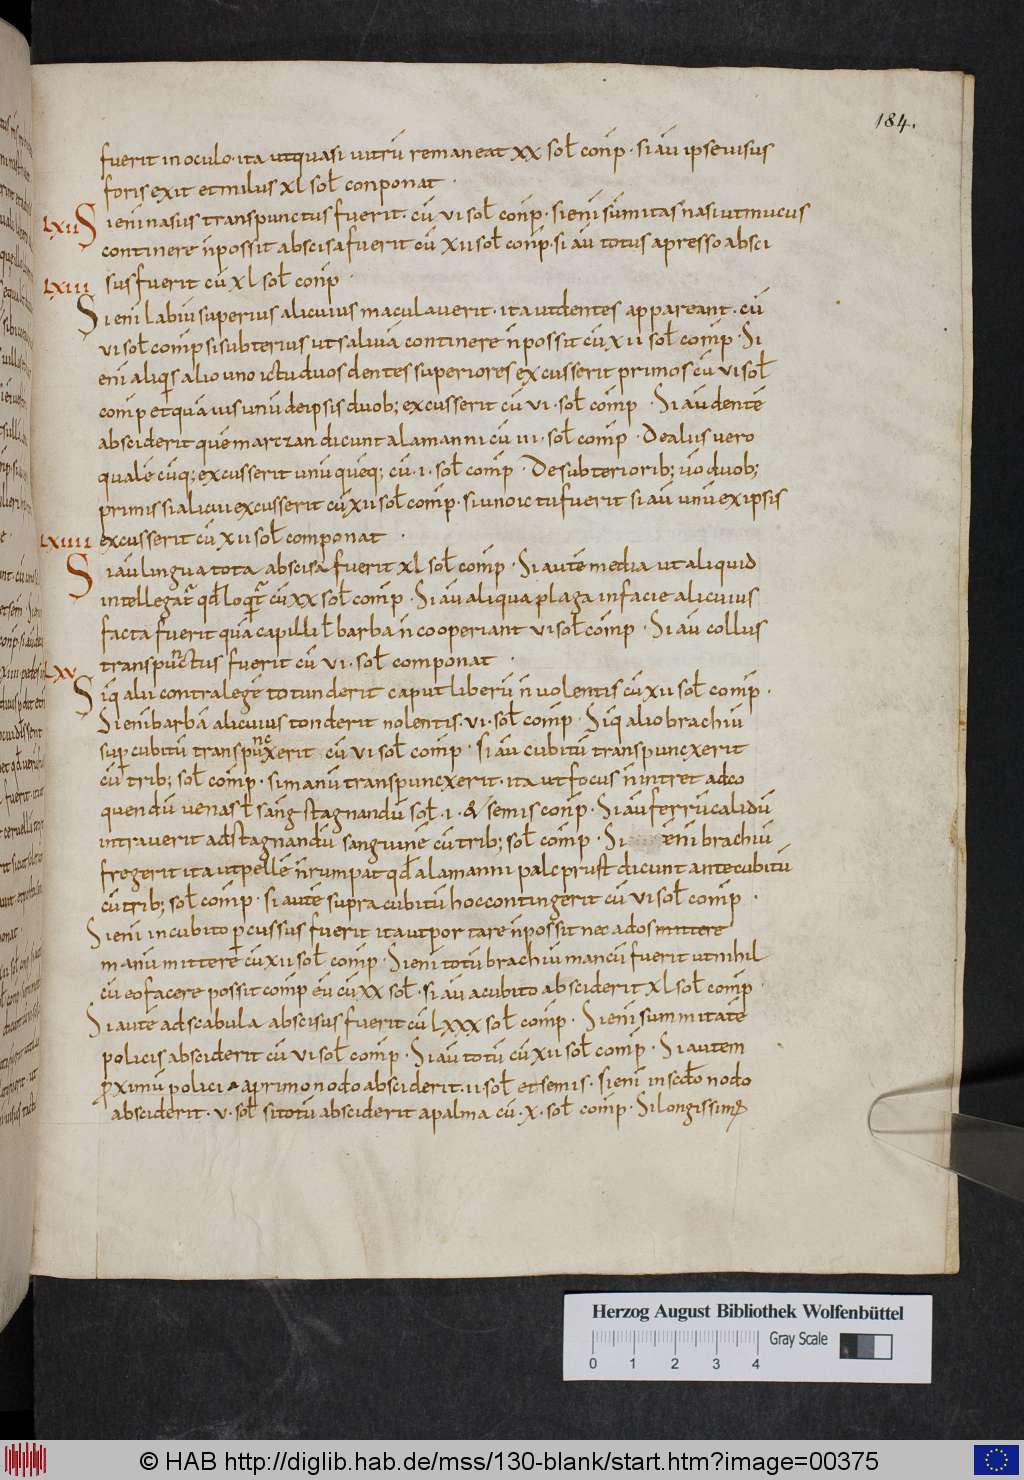 184.
fuerit in oculo · ita ut quasi uitrū remaneat xx sol̄ con̄p · si aū ipse uisus
foris exit et milus xl sol̄ conponat ·
LXII Si eni nasus transpunctus fuerit · cū vi sol̄ con̄p · si eni sūmitas nasi ut mucus
continere n̄ possit abscisa fuerit cū xii sol̄ con̄p · si aū totus apresso absci
LXIII sus fuerit cū xl sol̄ con̄p ·
Si eni labiū superius alicuius maculauerit · ita ut dentes appareant · cū
vi sol̄ com̄p si subterius ut saliuā continere n̄ possit cū xii sol̄ com̄p · Si
eni aliq̄s alio uno ictu duos dentes superiores excusserit primos cū vi sol̄
com̄p et quāuis unū de ipsis duob; excusserit cū vi · sol̄ com̄p · Si aū dentē
absciderit quē marczan dicunt alamanni cū iii · sol̄ com̄p · De alus uero
qualē cūq; excusserit unū quēq; cū · i · sol̄ com̄p · De subteriorib; ūo duob;
primis si alicui excusserit cū xii sol̄ com̄p · si uno ictu fuerit si aū unū ex ipsis
LXIIII excusserit cū xii sol̄ componat ·
Si aū lingua tota abscisa fuerit xl sol̄ com̄p · Si autē media ut aliquid
intellegat̄ qd̄ loq̄t̄ cū xx sol̄ com̄p · Si aū aliqua plaga in facie alicuius
facta fuerit quā capilli l̄ barba n̄ cooperiant vi sol̄ com̄p · Si aū collus
LXV transpunctus fuerit cū vi · sol̄ componat ·
Siq̄ alii contra legē totunderit caput liberū n̄ uolentis cū xii sol̄ com̄p ·
Si eni barbā alicuius tonderit nolentis · vi · sol̄ com̄p · Siq̄ alio brachiū
sup̄ cubitū transpuncxerit cū vi sol̄ com̄p · si aū cubitū transpuncxerit
cū trib; sol̄ com̄p · si manū transpuncxerit · ita ut focus n̄ intret ad co
quendū uenas l̄ sang̅ stagnandū sol̄ · i · & semis con̄p · Si aū ferrū calidū
intrauerit ad stagnandū sanguinē cū trib; sol̄ com̄p · Si eni brachiū
fregerit ita ut pellē n̄ rumpat qd̄ alamanni palcprust dicunt ante cubitū
cū trib; sol̄ com̄p · si autē supra cubitū hoc contingerit cū vi sol̄ com̄p ·
Si eni in cubito p̄cussus fuerit ita ut portare n̄ possit nec ad os mittere
manū mittere cū xii sol̄ com̄p · Si eni totū brachiū mancū fuerit ut nihil
cū eo facere possit com̄p eū cū xx sol̄ · si aū a cubito absciderit xl sol̄ com̄p
Si autē ad scabula abscisus fuerit cū lxxx sol̄ com̄p · Si eni summitatē
policis absciderit cū vi sol̄ com̄p · Si aū totū cū xii sol̄ com̄p · Si autem
proximū polici a primo nodo absciderit · ii sol̄ et semis · si eni in scd̄o nodo
absciderit · v · sol̄ si totū absciderit a palma cū · x · sol̄ com̄p · Si longissimū
Herzog August Bibliothek Wolfenbüttel
Gray Scale
0 1 2 3 4
© HAB http://diglib.hab.de/mss/130-blank/start.htm?image=00375